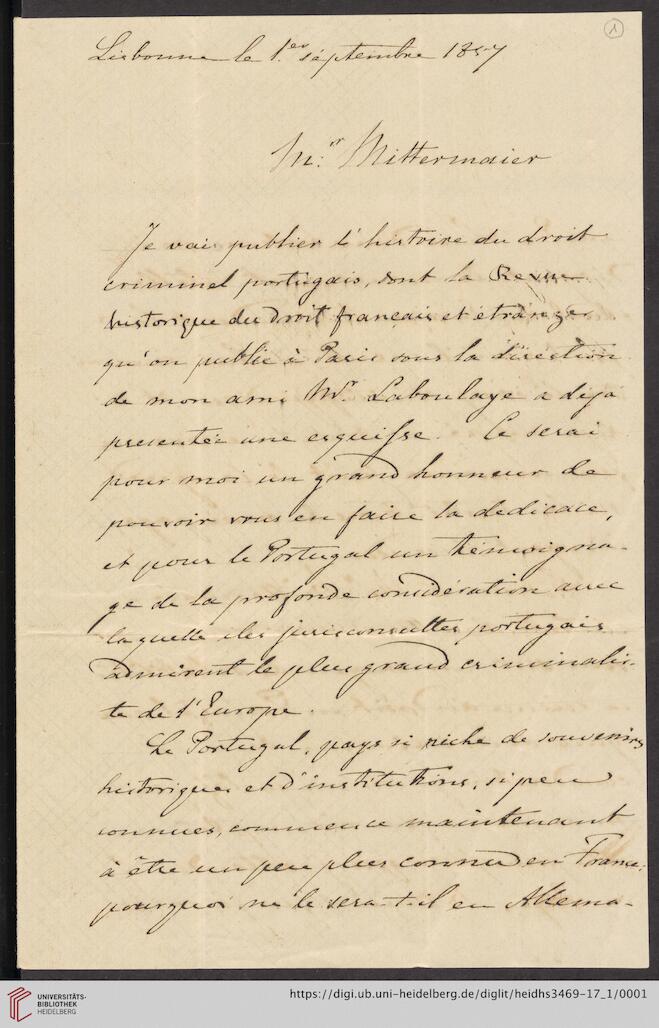 1
Lisbonne le 1.er séptembre 1857
M.r Mittermaier
Je vais publier l'histoire du droit
criminel portugais, dont la Revue
historique du Droit français et étranger
qu'on publie à Paris sous la direction
de mon ami Mr. Laboulaye a déjà
presentée une esquisse. Ce serai
pour moi un grand honneur de
pouvoir vous en faire la dedicace,
et pour le Portugal un témoigna-
ge de la profonde considération avec
laquelle les jurisconsultes portugais
admirent le plus grand criminalis-
te de l'Europe.
Le Portugal, pays si riche de souvenirs
historiques et d'institutions, si peu
connues, commence maintenant
à être un peu plus connu en France;
pourquoi ne le sera-t-il en Allema-
UNIVERSITÄTS-
BIBLIOTHEK
HEIDELBERG
https://digi.ub.uni-heidelberg.de/diglit/heidhs3469-17_1/0001